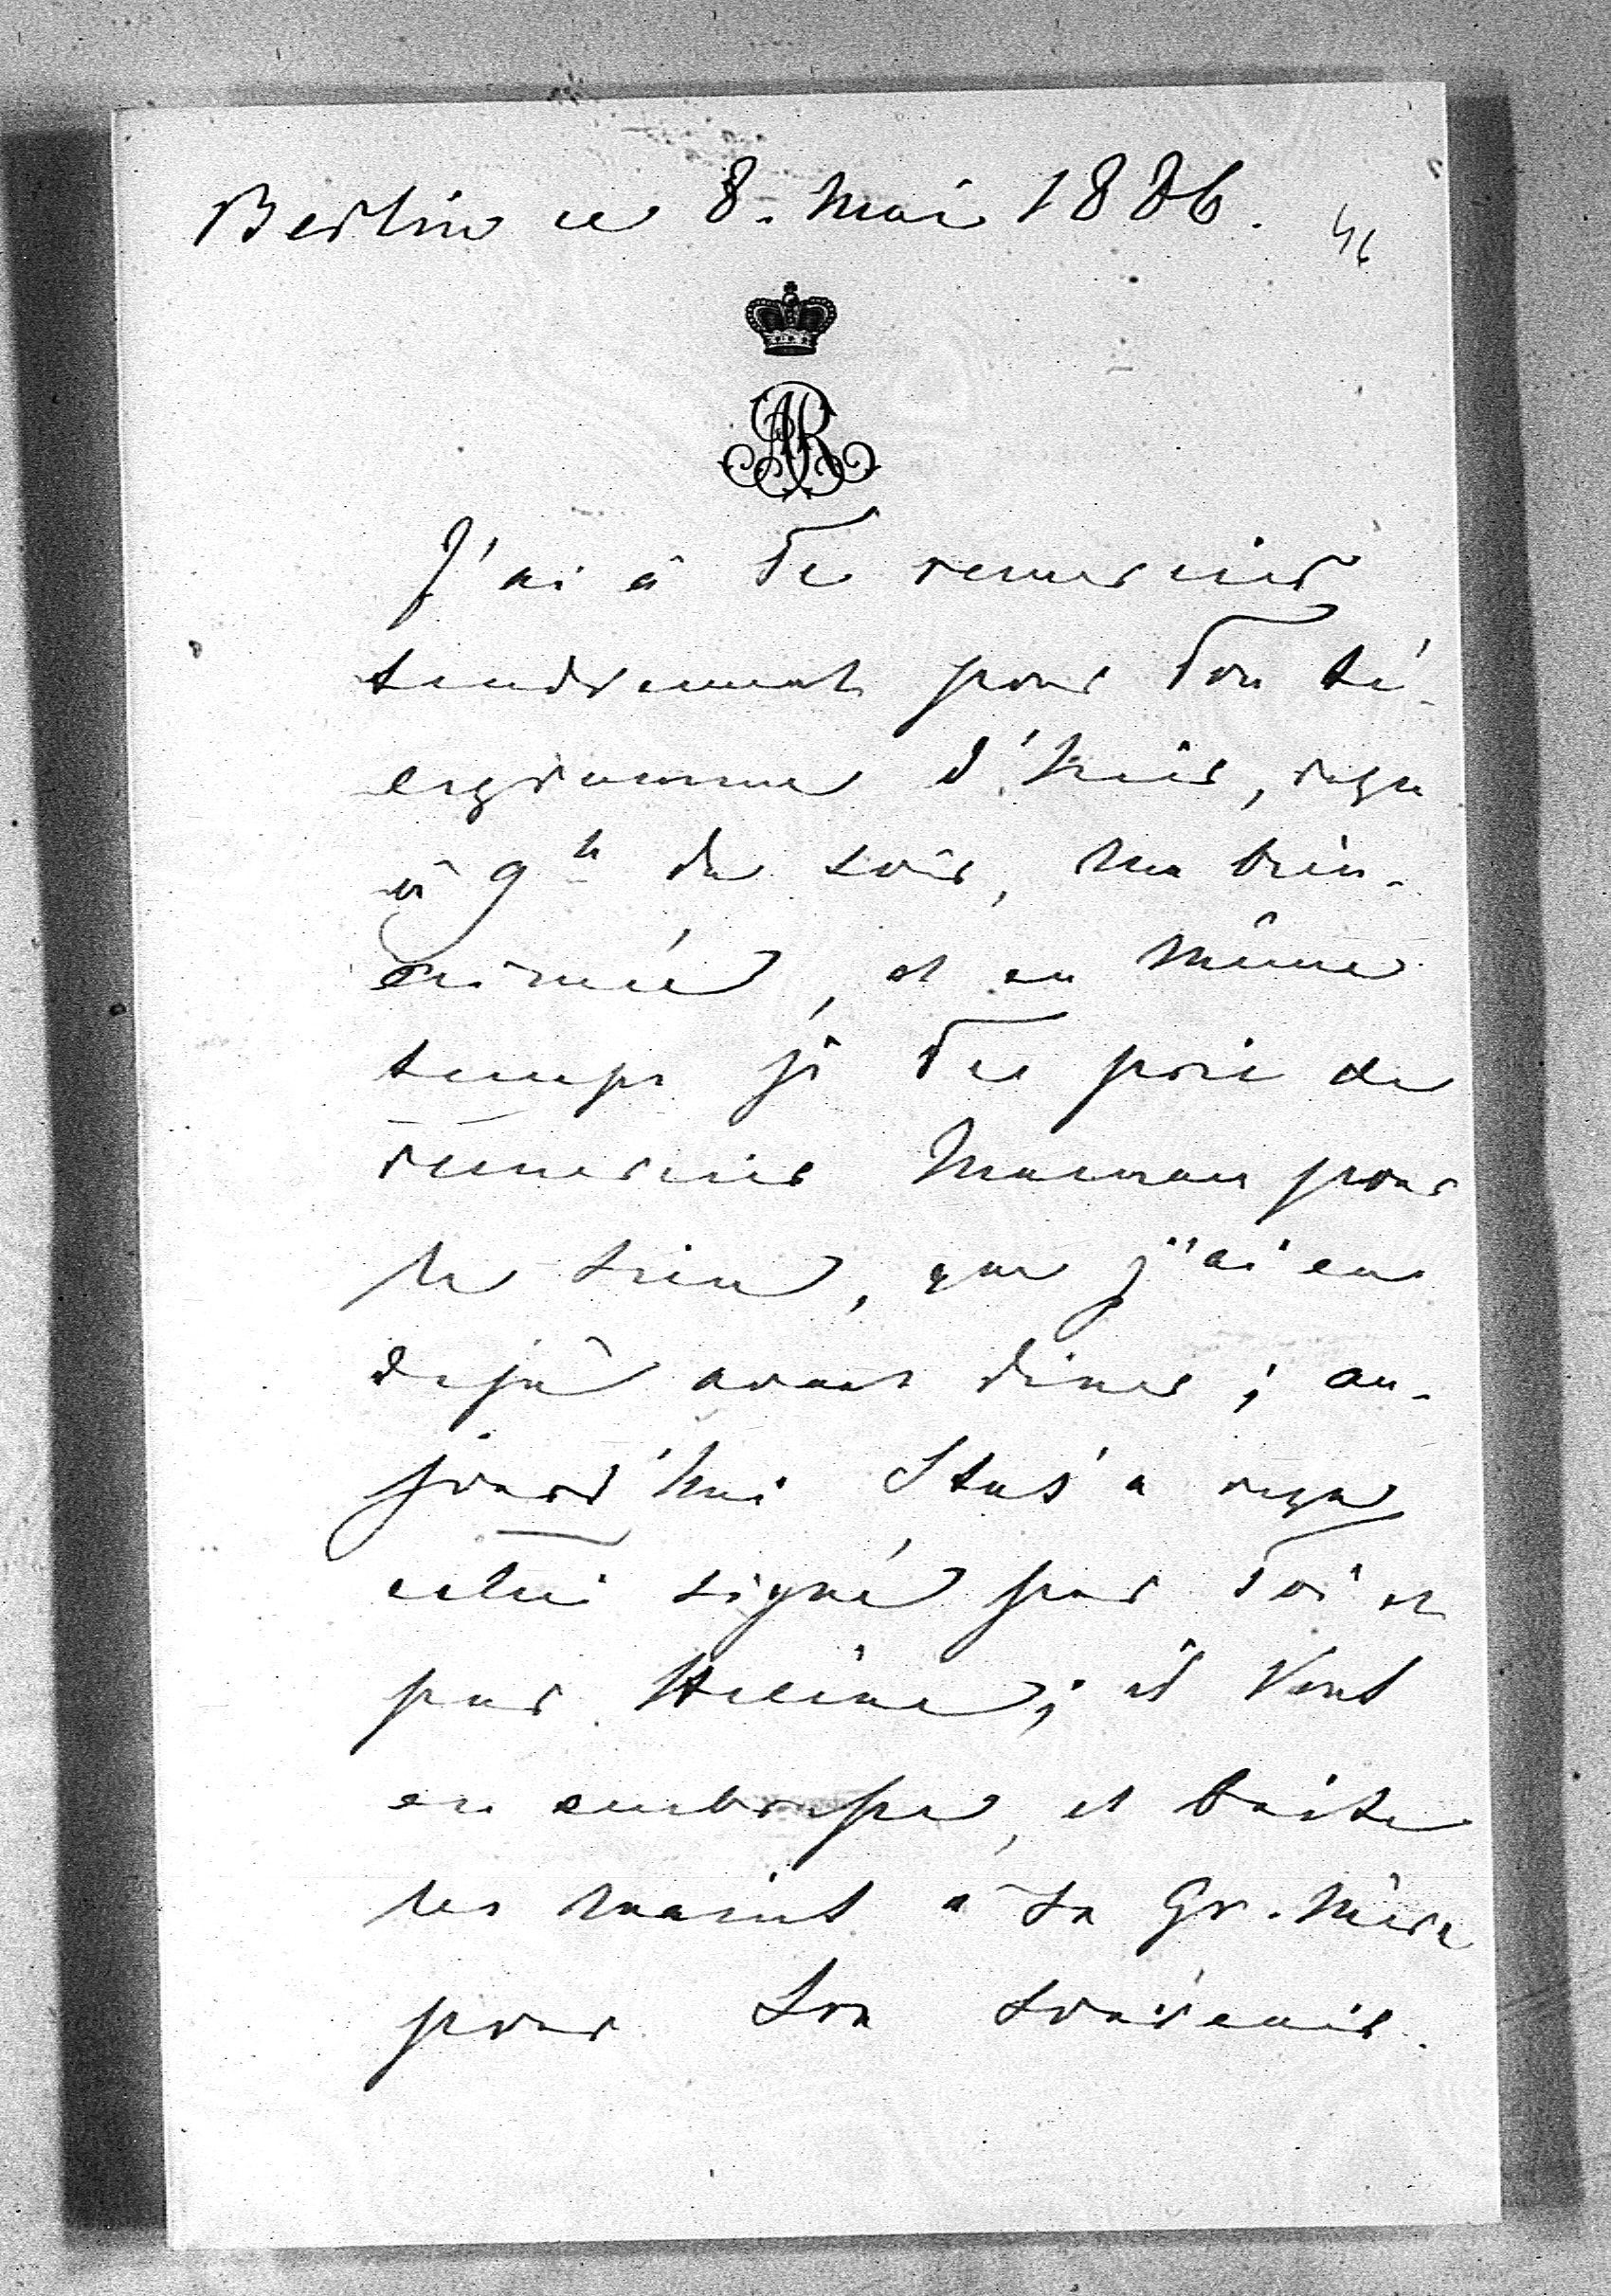 Berlin ce 8. Mai 1886.
46
AR
J'ai à Te remercier
tendrement pour Ton té-
legramme d'hier, reçu
à 9h du soir, ma bien-
aimée, et en même
temps je Te prie de
remercier Maman pour
le sien, que j'ai eu
dejà avant diner; au-
jourd'hui Stas' a reçu
celui signé par Toi et
par Hélène; il Vous
en embrasse, et baise
les mains à sa Gr. Mère
pour son souvenir.